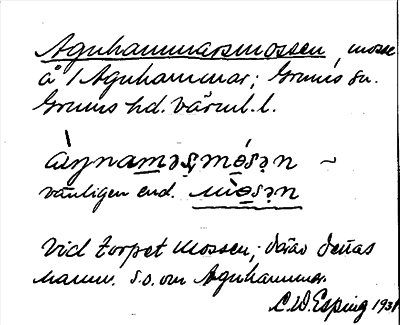 Agnhammarsmossen, mosse
å / Agnhammar; Grums sn.
Grums hd. Värml. l.
àŋnamǝṣmósǝn ~
vanligen end. mòsǝn
Vid torpet Mossen;
namn. S.o. om Agnhammar.
C.W. Esping 1931